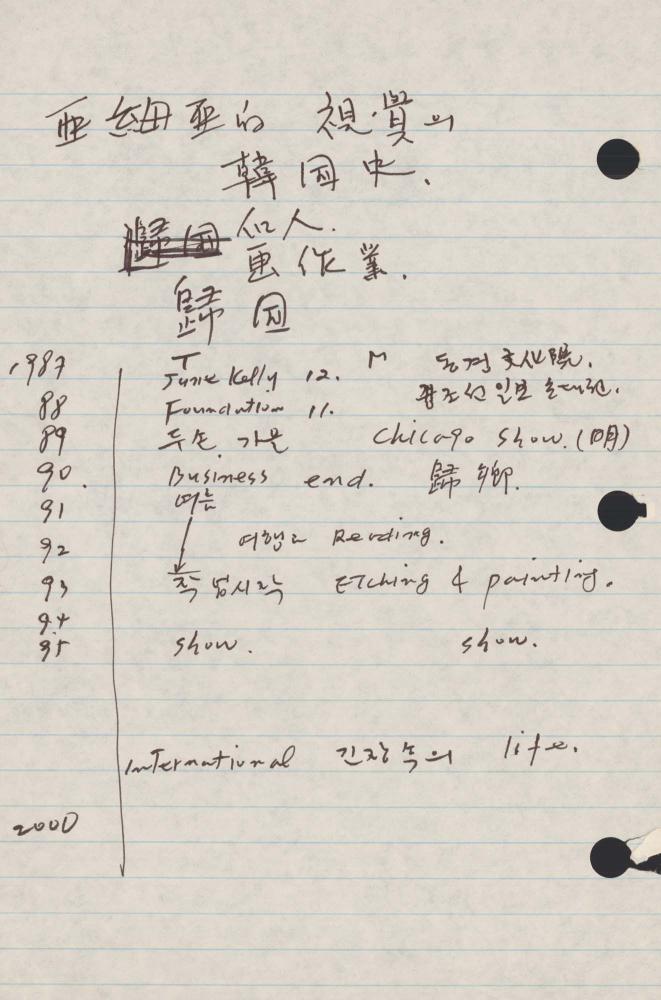 亜細亜的 視覺의
韓国史.
仙人.
画作業.
歸国
1987 T M 동경 文化院.
June Kelly 12. 조선일보 초대전.
88 Foundation 11.
89 두손 가을 Chicago show. (四月)
90. Business end. 歸鄕.
91 여름
92 여행과 Reading.
93 작업시작 Etching & painting.
94
95 show. show.
International 긴장속의 life.
2000